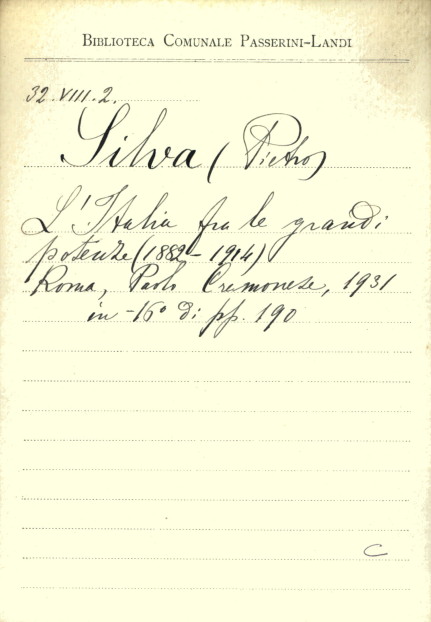 BIBLIOTECA COMUNALE PASSERINI-LANDI
32.VIII.2.
Silva (Pietro)
L'Italia fra le grandi
potenze (1882-1914)
Roma, Paolo Cremonese, 1931
in-16° di pp. 190
C